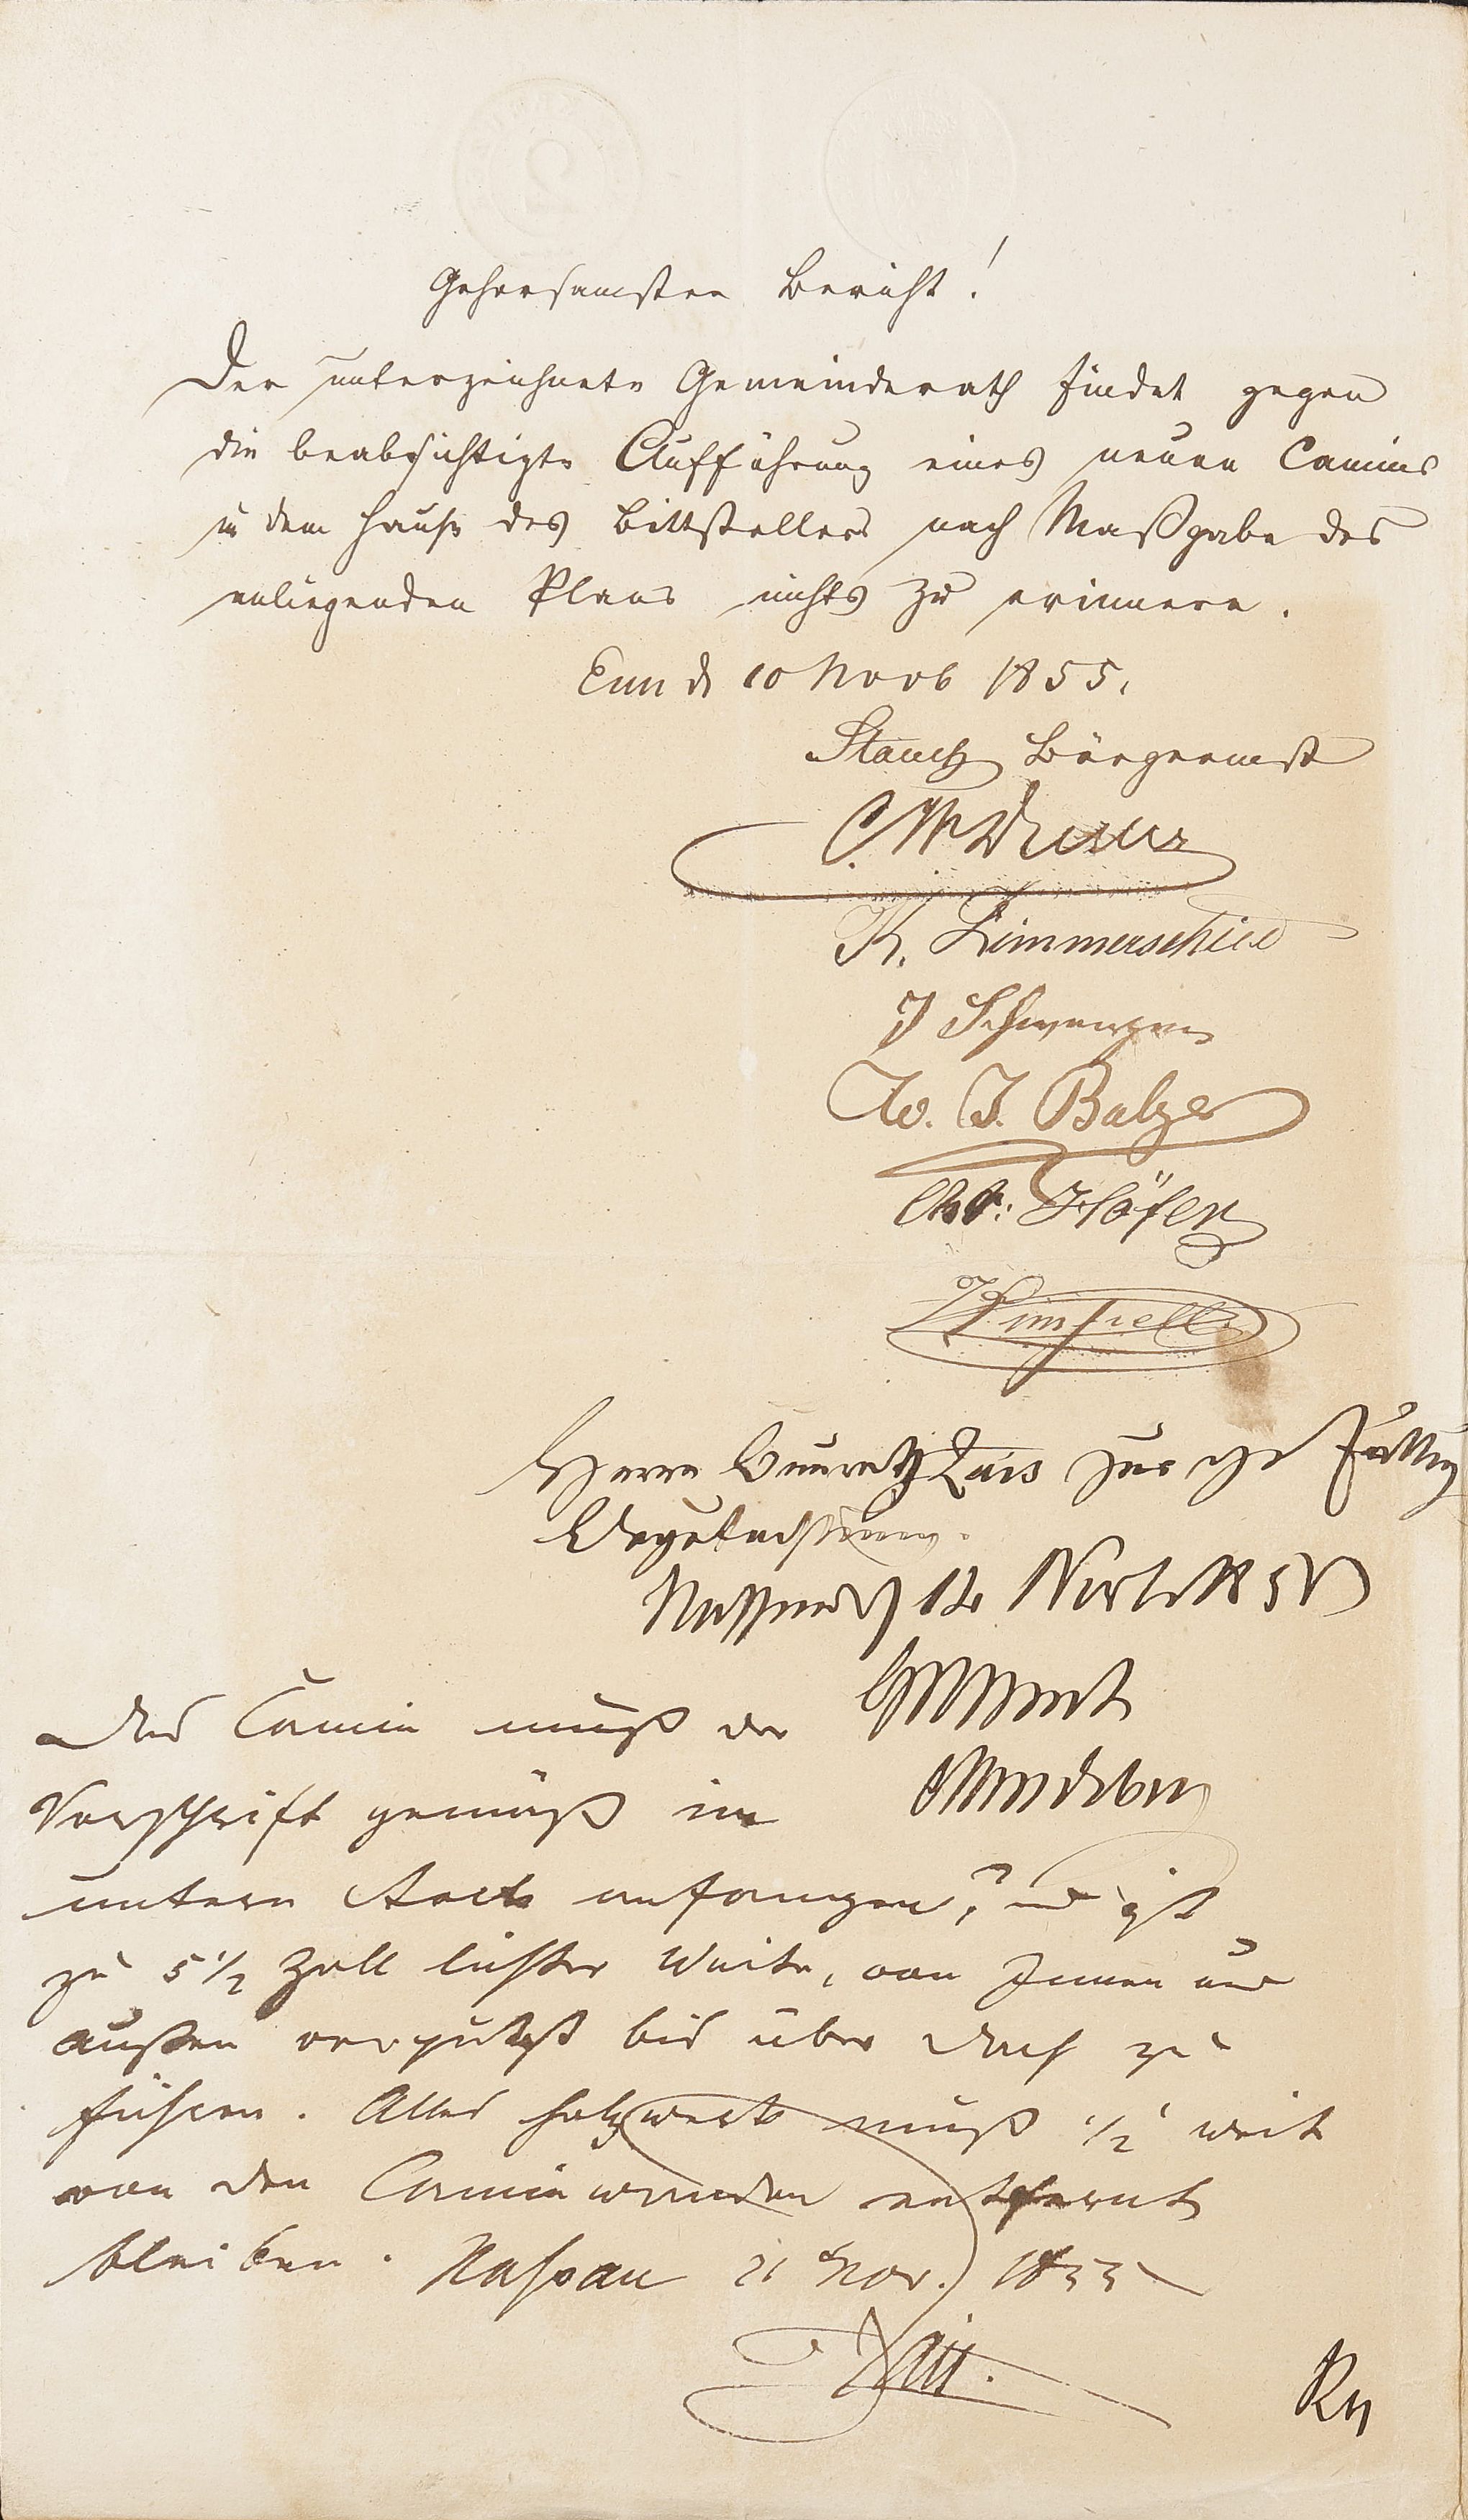 Gehorsamster Bericht!
Der unterzeichnete Gemeinderath findet gegen
die beabsichtigte Aufführung eines neuen Camins
in dem Hause des Bittstellers nach Maßgabe des
anliegenden Plans nichts zu erinnern.
Ems d 10 Novb 1855.
Stauch Bürgermst
K. Zimmerschied
J Schwenzer
W. J. Balzer
Chr: Höfer
Herrn Baurath zur
Begutachtung.
Nassau d 12 Novb 1855
Das Camin muß der
Vorschrift gemäß im
untern Stock anfangen, und ist
zu 5 1/2 Zoll lichter Weite, von Innen und
außen verputzt bis über Dach zu
führen. Alles Holzwerk muß 1/2' weit
von den Caminwänden entfernt
bleiben. Nassau 21 Nov. 1855